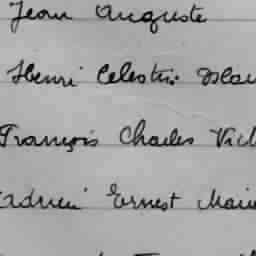 Jean Auguste
Henri Celestin
François Charles Vict
Adrien Ernest Marie